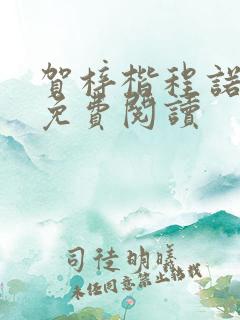 賀梓楷程諾
免費閱讀
司徒明曦
未经同意禁止转载